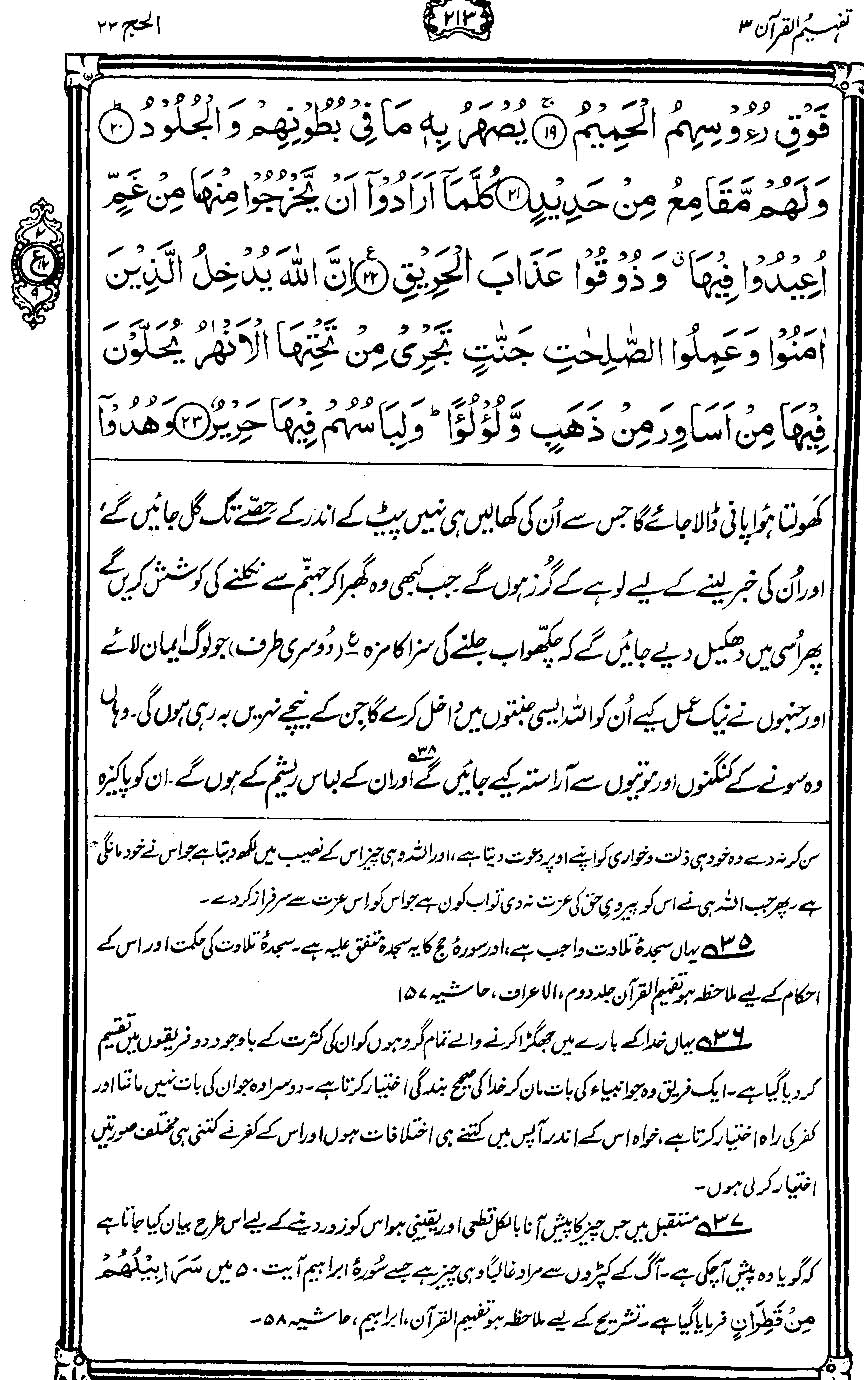 تفہیم القرآن ۳
۲۱۳
الحج ۲۲
فَوْقِ رُءُوْسِهِمُ الْحَمِيْمُ ۝۱۹ يُصْهَرُ بِهٖ مَا فِيْ بُطُوْنِهِمْ وَالْجُلُوْدُ ۝۲۰
وَلَهُمْ مَّقَامِعُ مِنْ حَدِيْدٍ ۝۲۱ كُلَّمَآ اَرَادُوْٓا اَنْ يَّخْرُجُوْا مِنْهَا مِنْ غَمٍّ
اُعِيْدُوْا فِيْهَا ۗ وَذُوْقُوْا عَذَابَ الْحَرِيْقِ ۝۲۲ اِنَّ اللّٰهَ يُدْخِلُ الَّذِيْنَ
اٰمَنُوْا وَعَمِلُوا الصّٰلِحٰتِ جَنّٰتٍ تَجْرِيْ مِنْ تَحْتِهَا الْاَنْهٰرُ يُحَلَّوْنَ
فِيْهَا مِنْ اَسَاوِرَ مِنْ ذَهَبٍ وَّلُؤْلُؤًا ۭ وَلِبَاسُهُمْ فِيْهَا حَرِيْرٌ ۝۲۳ وَهُدُوْٓا
کھولتا ہوا پانی ڈالا جائے گا جس سے اُن کی کھالیں ہی نہیں پیٹ کے اندر کے حصّے تک گل جائیں گے،
اور اُن کی خبر لینے کے لیے لوہے کے گُرز ہوں گے۔ جب کبھی وہ گھبرا کر جہنّم سے نکلنے کی کوشش کریں گے
پھر اُسی میں دھکیل دیے جائیں گے کہ چکھو اب جلنے کی سزا کا مزہ۔ ع (دُوسری طرف) جو لوگ ایمان لائے
اور جنہوں نے نیک عمل کیے اُن کو اللہ ایسی جنتوں میں داخل کرے گا جن کے نیچے نہریں بہ رہی ہوں گی۔ وہاں
وہ سونے کے کنگنوں اور موتیوں سے آراستہ کیے جائیں گے ۳۸ اور ان کے لباس ریشم کے ہوں گے۔ ان کو پاکیزہ
سن کر نہ دے وہ خود ہی ذلت و خواری کو اپنے اوپر دعوت دیتا ہے، اور اللہ وہی چیز اس کے نصیب میں لکھ دیتا ہے جو اس نے خود مانگی
ہے۔ پھر جب اللہ ہی نے اس کو پیرویِ حق کی عزت نہ دی تو اب کون ہے جو اس کو اس عزت سے سرفراز کر دے۔
۳۵ یہاں سجدۂ تلاوت واجب ہے، اور سورۂ حج کا یہ سجدہ متفق علیہ ہے۔ سجدۂ تلاوت کی حکمت اور اس کے
احکام کے لیے ملاحظہ ہو تفہیم القرآن جلد دوم، الاعراف، حاشیہ ۱۵۷
۳۶ یہاں خدا کے بارے میں جھگڑا کرنے والے تمام گروہوں کو ان کی کثرت کے باوجود دو فریقوں میں تقسیم
کر دیا گیا ہے۔ ایک فریق وہ جو انبیاء کی بات مان کر خدا کی صحیح بندگی اختیار کرتا ہے۔ دوسرا وہ جو ان کی بات نہیں مانتا اور
کفر کی راہ اختیار کرتا ہے، خواہ اس کے اندر آپس میں کتنے ہی اختلافات ہوں اور اس کے کفر نے کتنی ہی مختلف صورتیں
اختیار کر لی ہوں۔
۳۷ مستقبل میں جس چیز کا پیش آنا بالکل قطعی اور یقینی ہو اس کو زور دینے کے لیے اس طرح بیان کیا جاتا ہے
کہ گویا وہ پیش آ چکی ہے۔ آگ کے کپڑوں سے مراد غالباً وہی چیز ہے جسے سُورۂ ابراہیم آیت ۵۰ میں سَرَابِيْلُهُمْ
مِنْ قَطِرَانٍ فرمایا گیا ہے۔ تشریح کے لیے ملاحظہ ہو تفہیم القرآن، ابراہیم، حاشیہ ۵۸۔